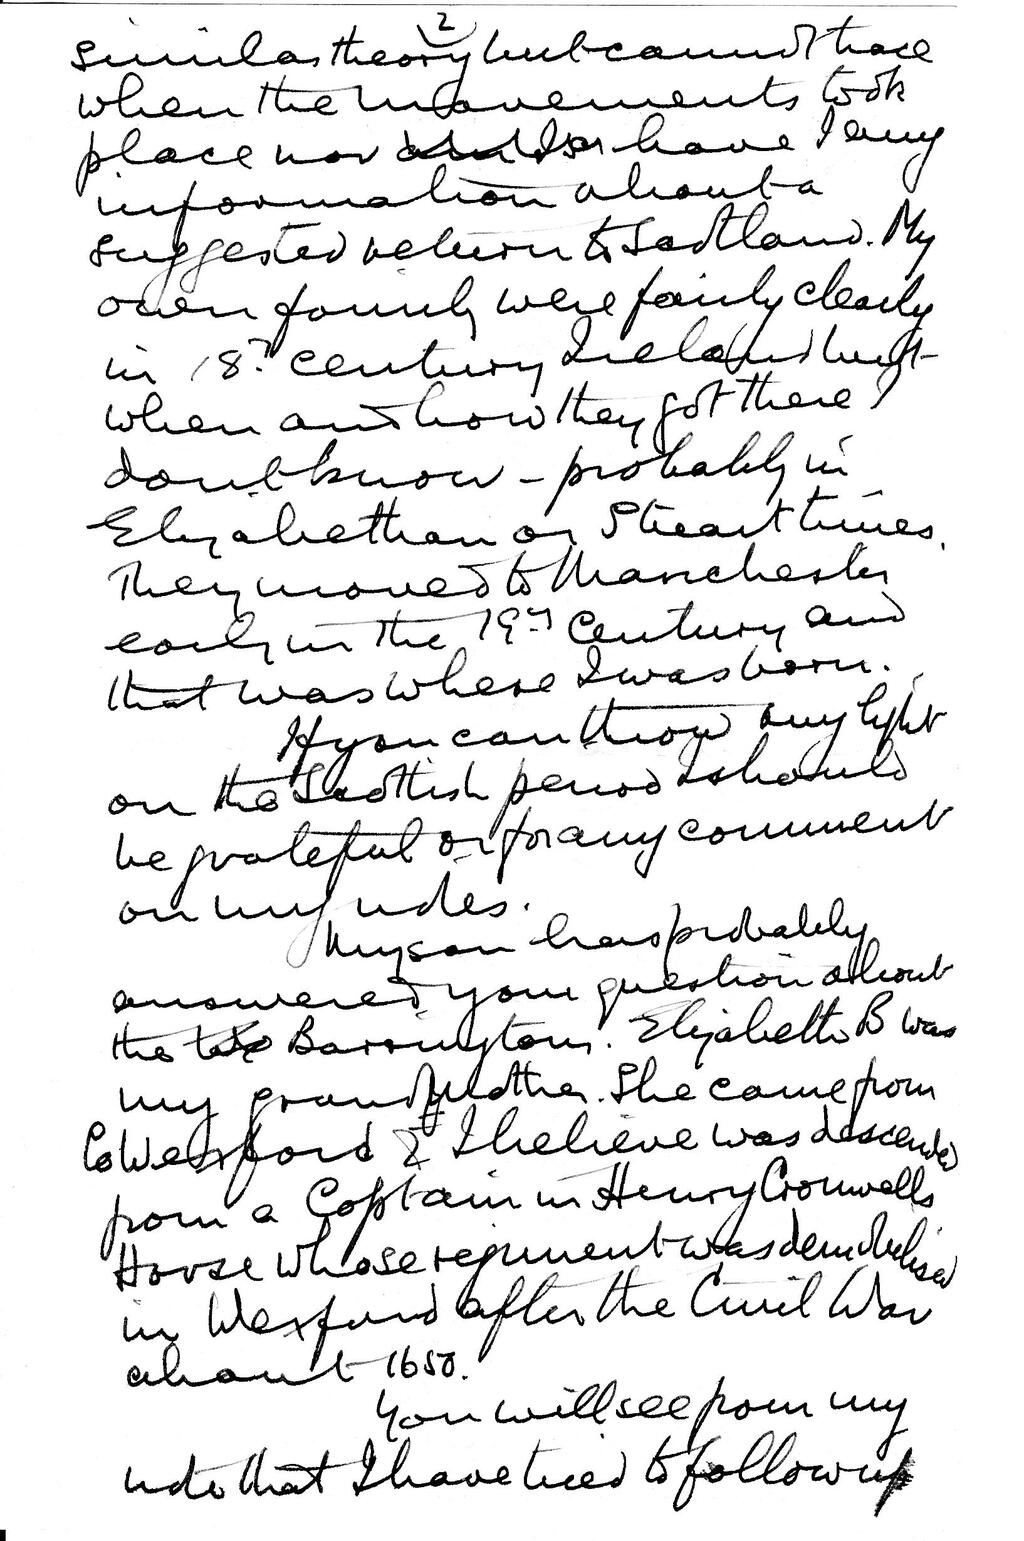 2
similar theory but cannot trace
when the movements took
place nor have I any
information about a
suggested return to Scotland. My
own family were fairly clearly
in 18th century Ireland but
when and how they got there I
dont know - probably in
Elizabethan or Stuart times.
They moved to Manchester
early in the 19th Century and
that was where I was born.
If you can throw any light
on the Scottish period I should
be grateful or for any comment
on my notes.
My son has probably
answered your question about
the Barringtons. Elizabeth B was
my grandmother. She came from
Co Wexford & I believe was descended
from a Captain in Henry Cromwells
Horse whose regiment was demobilised
in Wexford after the Civil War
about 1650.
You will see from my
note that I have tried to follow up